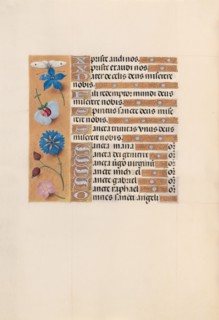 Christe audi nos.
Christe exaudi nos.
Pater de celis deus miserere
nobis.
Fili redemptor mundi deus
miserere nobis.
Spiritus sancte deus misere
re nobis.
Sancta trinitas unus deus
miserere nobis.
Sancta maria or
Sancta dei genitrix or
Sancta virgo virginum or
Sancte michael or
Sancte gabriel or
Sancte raphael or
Omnes sancti angeli